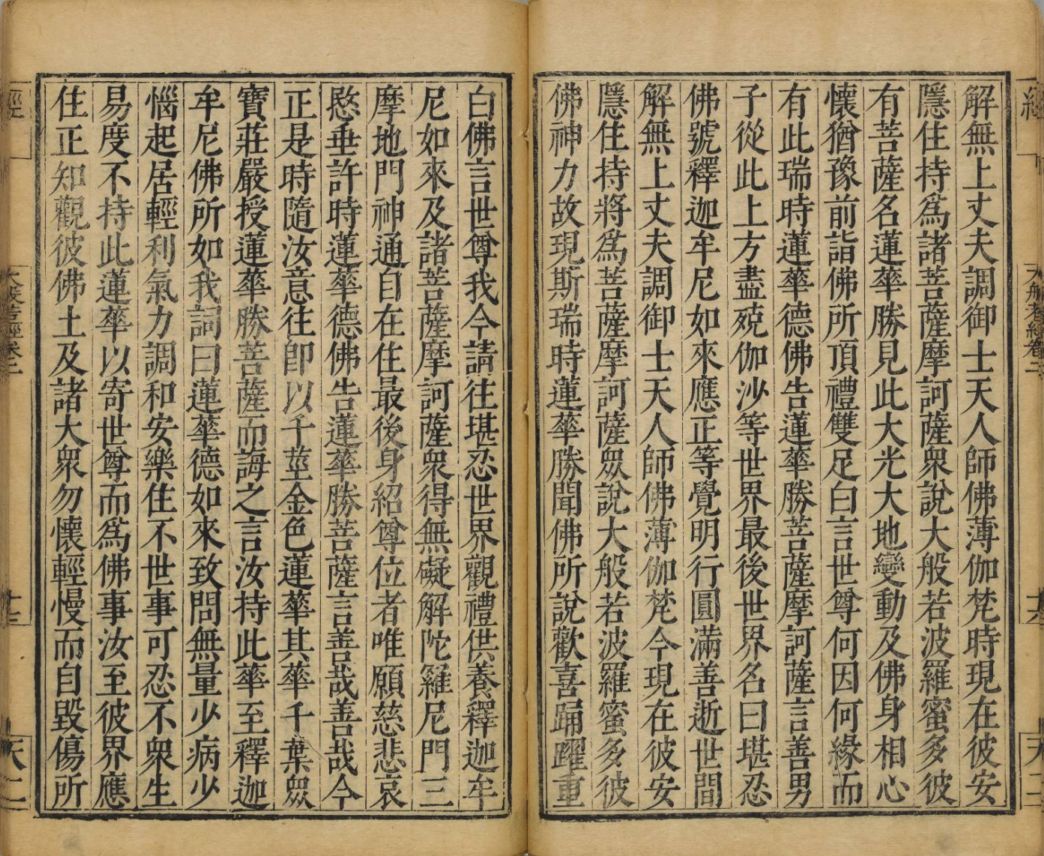 解無上丈夫調御士天人師佛薄伽梵時現在彼安
隱住持爲諸菩薩摩訶薩衆說大般若波羅蜜多彼
有菩薩名蓮華勝見此大光大地變動及佛身相心
懷猶豫前詣佛所頂禮雙足白言世尊何因何緣而
有此瑞時蓮華德佛告蓮華勝菩薩摩訶薩言善男
子從此上方盡殑伽沙等世界最後世界名曰堪忍
佛號釋迦牟尼如來應正等覺明行圓滿善逝世間
解無上丈夫調御士天人師佛薄伽梵今現在彼安
隱住持將爲菩薩摩訶薩眾說大般若波羅蜜多彼
佛神力故現斯瑞時蓮華勝聞佛所說歡喜踊躍重
白佛言世尊我今請往堪忍世界觀禮供養釋迦牟
尼如來及諸菩薩摩訶薩衆得無礙解陀羅尼門三
摩地門神通自在住最後身紹尊位者唯願慈悲哀
愍垂許時蓮華德佛告蓮華勝菩薩言善哉善哉今
正是時隨汝意往卽以千莖金色蓮華其華千葉眾
寶莊嚴授蓮華勝菩薩而誨之言汝持此華至釋迦
牟尼佛所如我詞曰蓮華德如來致問無量少病少
惱起居輕利氣力調和安樂住不世事可忍不衆生
易度不持此蓮華以寄世尊而爲佛事汝至彼界應
住正知觀彼佛土及諸大衆勿懷輕慢而自毀傷所